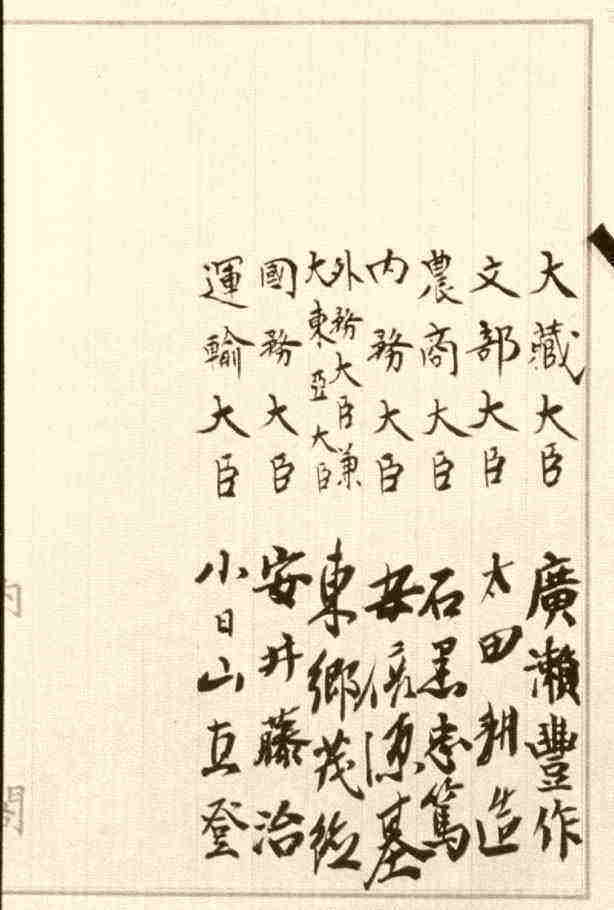 大藏大臣 廣瀨豐作
文部大臣 太田耕造
農商大臣 石黑忠篤
内務大臣 安倍源基
外務大臣兼
大東亞大臣 東鄉茂德
國務大臣 安井藤治
運輸大臣 小日山直登
内閣